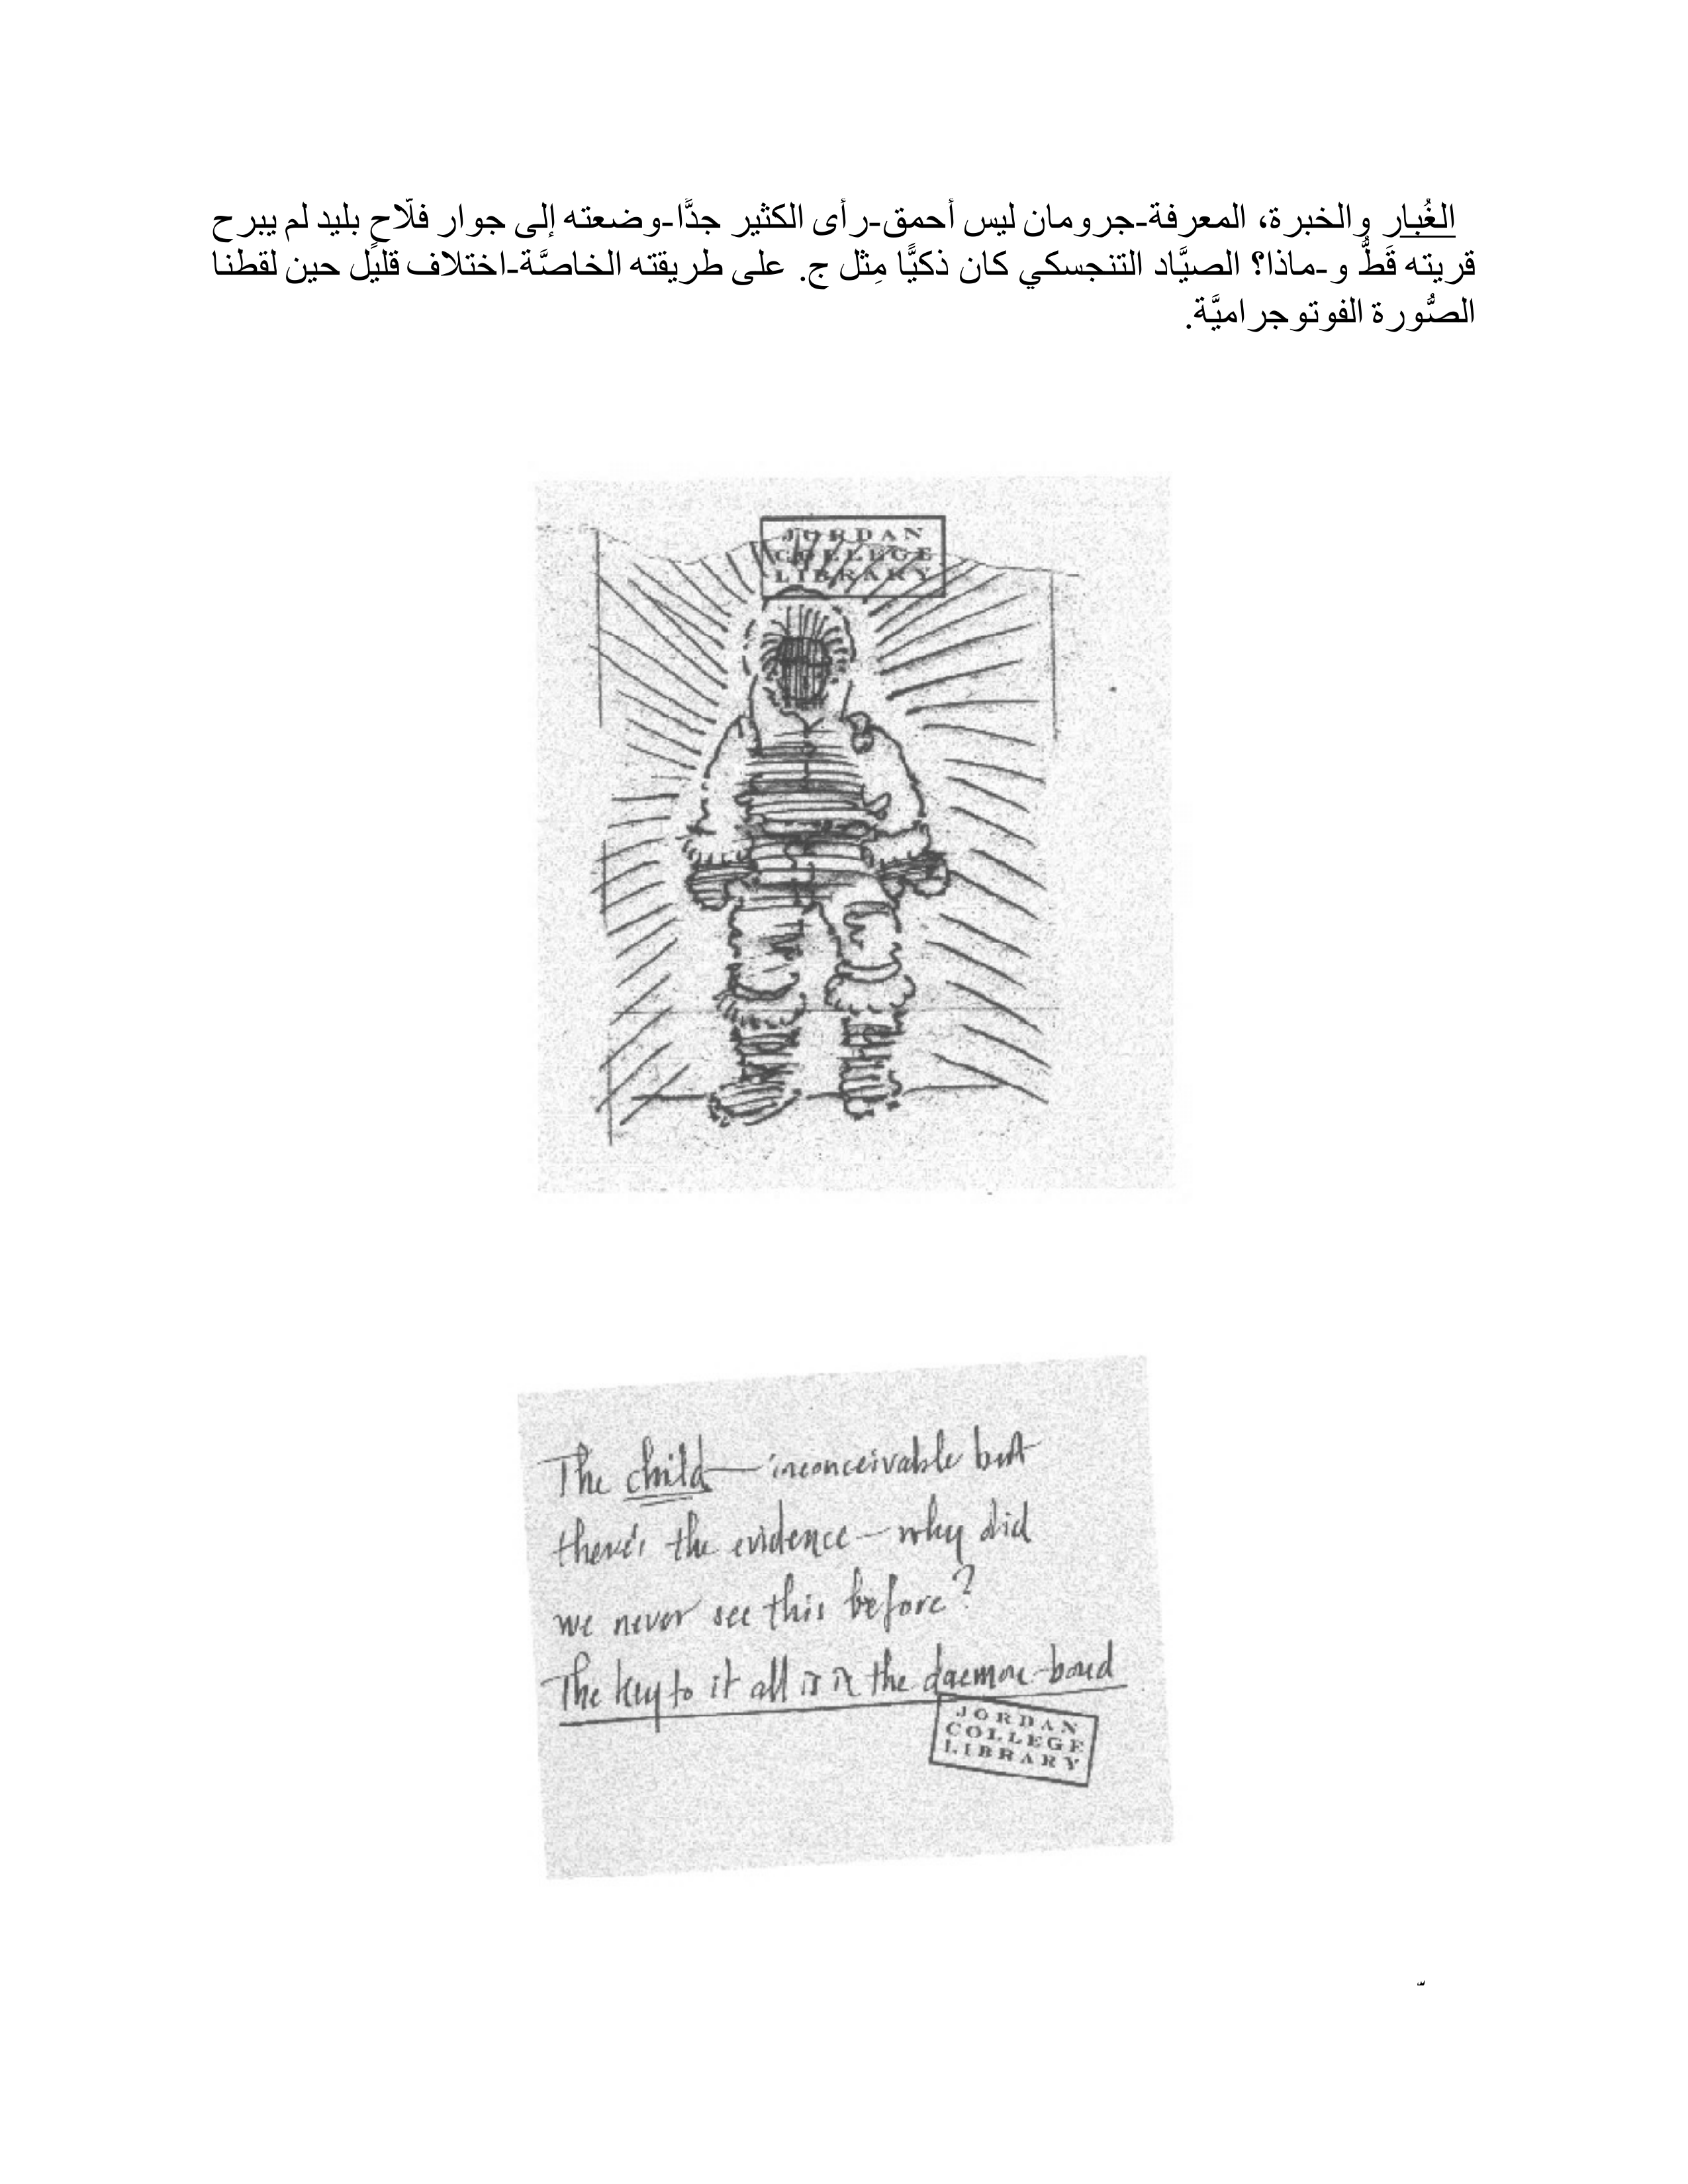 الغُبار والخبرة، المعرفة-جرومان ليس أحمق-رأى الكثير جدًّا-وضعته إلى جوار فلّاحٍ بليد لم يبرح
قريته قَطُّ و-ماذا؟ الصيَّاد التنجسكي كان ذكيًّا مِثل ج. على طريقته الخاصَّة-اختلاف قليل حين لقطنا
الصُّورة الفوتوجراميَّة.
JORDAN
COLLEGE
LIBRARY
The child — inconceivable but
there's the evidence — why did
we never see this before?
The key to it all is in the daemon-bond
JORDAN
COLLEGE
LIBRARY